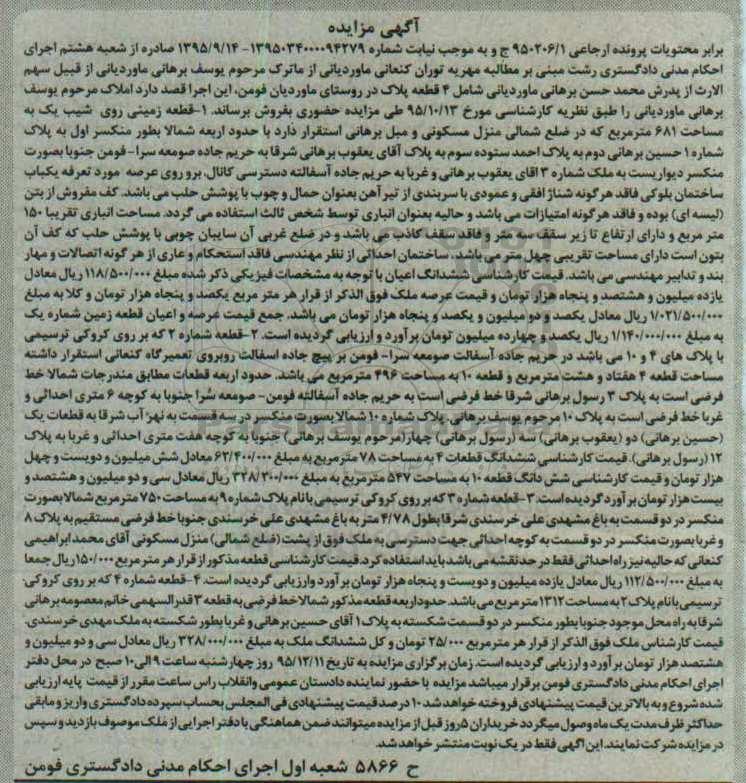 آگهی مزایده
برابر محتویات پرونده ارجاعی ۹۵۰۲۰۶/۱ ج و به موجب نیابت شماره ۱۳۹۵۰۳۴۰۰۰۰۹۴۲۷۹- ۱۳۹۵/۹/۱۴ صادره از شعبه هشتم اجرای
احکام مدنی دادگستری رشت مبنی بر مطالبه مهریه توران کنعانی ماوردیانی از ماترک مرحوم یوسف برهانی ماوردیانی از قبیل سهم
الارث از پدرش محمد حسن برهانی ماوردیانی شامل ۴ قطعه پلاک در روستای ماوردیان فومن، این اجرا قصد دارد املاک مرحوم یوسف
برهانی ماوردیانی را طبق نظریه کارشناسی مورخ ۹۵/۱۰/۱۳ طی مزایده حضوری بفروش برساند. ۱-قطعه زمینی روی شیب یک به
مساحت ۶۸۱ مترمربع که در ضلع شمالی منزل مسکونی و مبل برهانی استقرار دارد با حدود اربعه شمالا بطور منکسر اول به پلاک
شماره ۱ حسین برهانی دوم به پلاک احمد ستوده سوم به پلاک آقای یعقوب برهانی شرقا به حریم جاده صومعه سرا-فومن جنوبا بصورت
منکسر دیواریست به ملک شماره ۳ اقای یعقوب برهانی و غربا به حریم جاده آسفالته دسترسی کانال. برو روی عرصه مورد تعرفه یکباب
ساختمان بلوکی فاقد هرگونه شناژ افقی و عمودی با سربندی از تیر آهن بعنوان حمال و چوب با پوشش حلب می باشد. کف مفروش از بتن
(لیسه ای) بوده و فاقد هرگونه امتیازات می باشد و حالیه بعنوان انباری توسط شخص ثالث استفاده می گردد. مساحت انباری تقریبا ۱۵۰
متر مربع و دارای ارتفاع تا زیر سقف سه متر و فاقد سقف کاذب می باشد و در ضلع غربی آن سایبان چوبی با پوشش حلب که کف آن
بتون است دارای مساحت تقریبی چهل متر می باشد. ساختمان احداثی از نظر مهندسی فاقد استحکام و عاری از هر گونه اتصالات و مهار
بند و تدابیر مهندسی می باشد. قیمت کارشناسی ششدانگ اعیان با توجه به مشخصات فیزیکی ذکر شده مبلغ ۱۱۸/۵۰۰/۰۰۰ ریال معادل
یازده میلیون و هشتصد و پنجاه هزار تومان و قیمت عرصه ملک فوق الذکر از قرار هر متر مربع یکصد و پنجاه هزار تومان و کلا به مبلغ
۱/۰۲۱/۵۰۰/۰۰۰ ریال معادل یکصد و دو میلیون و یکصد و پنجاه هزار تومان می باشد. جمع قیمت عرصه و اعیان قطعه زمین شماره یک
به مبلغ ۱/۱۴۰/۰۰۰/۰۰۰ ریال یکصد و چهارده میلیون تومان برآورد و ارزیابی گردیده است. ۲-قطعه شماره ۲ که بر روی کروکی ترسیمی
با پلاک های ۴ و ۱۰ می باشد در حریم جاده آسفالت صومعه سرا- فومن بر پیچ جاده اسفالت روبروی تعمیرگاه کنعانی استقرار داشته
مساحت قطعه ۴ هفتاد و هشت مترمربع و قطعه ۱۰ به مساحت ۴۹۶ مترمربع می باشد. حدود اربعه قطعات مطابق مندرجات شمالا خط
فرضی است به پلاک ۳ رسول برهانی شرقا خط فرضی است به حریم جاده آسفالته فومن- صومعه سرا جنوبا به کوچه ۶ متری احداثی و
غربا خط فرضی است به پلاک ۱۰ مرحوم یوسف برهانی. پلاک شماره ۱۰ شمالا بصورت منکسر در سه قسمت به نهر آب شرقا به قطعات یک
(حسین برهانی) دو (یعقوب برهانی) سه (رسول برهانی) چهار(مرحوم یوسف برهانی) جنوبا به کوچه هفت متری احداثی و غربا به پلاک
۱۲ (رسول برهانی). قیمت کارشناسی ششدانگ قطعات ۴ به مساحت ۷۸ مترمربع به مبلغ ۶۲/۴۰۰/۰۰۰ معادل شش میلیون و دویست و چهل
هزار تومان و قیمت کارشناسی شش دانگ قطعه ۱۰ به مساحت ۵۴۷ مترمربع به مبلغ ۳۲۸/۲۰۰/۰۰۰ ریال معادل سی و دو میلیون و هشتصد و
بیست هزار تومان برآورد گردیده است. ۳-قطعه شماره ۳ که بر روی کروکی ترسیمی با نام پلاک شماره ۹ به مساحت ۷۵۰ مترمربع شمالا بصورت
منکسر در دو قسمت به باغ مشهدی علی خرسندی شرقا بطول ۴/۷۸ متر به باغ مشهدی علی خرسندی جنوبا خط فرضی مستقیم به پلاک ۸
و غربا بصورت منکسر در دو قسمت به کوچه احداثی جهت دسترسی به ملک فوق از پشت (ضلع شمالی) منزل مسکونی آقای محمد ابراهیمی
کنعانی که حالیه نیز راه احداثی فقط در حد نقشه می باشد باید استفاده کرد. قیمت کارشناسی قطعه مذکور از قرار هر متر مربع ۱۵۰/۰۰۰ ریال جمعا
به مبلغ ۱۱۲/۵۰۰/۰۰۰ ریال معادل یازده میلیون و دویست و پنجاه هزار تومان برآورد وارزیابی گردیده است. ۴-قطعه شماره ۴ که بر روی کروکی
ترسیمی با نام پلاک ۲ به مساحت ۱۳۱۲ متر مربع می باشد. حدوداربعه قطعه مذکور شمالا خط فرضی به قطعه ۳ قدرالسهمی خانم معصومه برهانی
شرقا به راه محل موجود جنوبا بطور منکسر در دو قسمت شکسته به پلاک ۱ آقای حسین برهانی و غربا بطور شکسته به ملک مهدی خرسندی.
قیمت کارشناس ملک فوق الذکر از قرار هر مترمربع ۲۵/۰۰۰ تومان و کل ششدانگ ملک به مبلغ ۳۲۸/۰۰۰/۰۰۰ ریال معادل سی و دو میلیون و
هشتصد هزار تومان برآورد و ارزیابی گردیده است. زمان برگزاری مزایده به تاریخ ۹۵/۱۲/۱۱ روز چهارشنبه ساعت ۹ الی ۱۰ صبح در محل دفتر
اجرای احکام مدنی دادگستری فومن برقرار میباشد مزایده با حضور نماینده دادستان عمومی وانقلاب راس ساعت مقرر از قیمت پایه ارزیابی
شده شروع و به بالاترین قیمت پیشنهادی فروخته خواهد شد ۱۰ درصد قیمت پیشنهادی فی المجلس بحساب سپرده دادگستری واریز و مابقی
حداکثر ظرف مدت یک ماه وصول میگردد خریداران ۵ روز قبل از مزایده میتوانند ضمن هماهنگی با دفتر اجرایی از ملک موصوف بازدید و سپس
در مزایده شرکت نمایند. این اگهی فقط در یک نوبت منتشر خواهد شد.
ح ۵۸۶۶ شعبه اول اجرای احکام مدنی دادگستری فومن